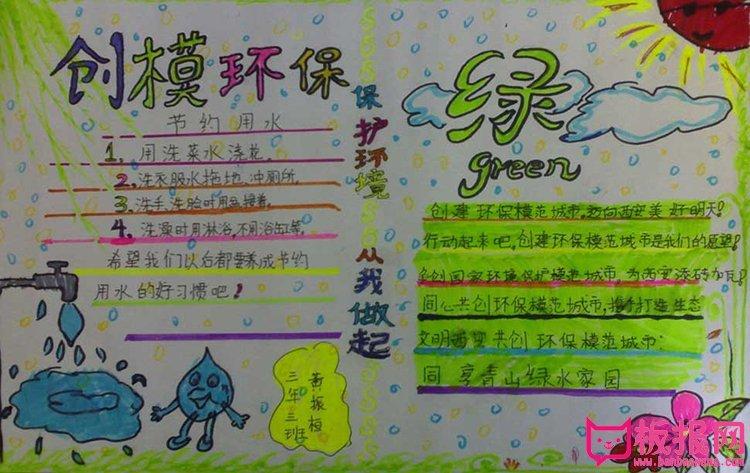 创模环保
节约用水
1. 用洗菜水浇花。
2. 洗衣服水拖地、冲厕所。
3. 洗手、洗脸时用盆接着。
4. 洗澡时用淋浴,不用浴缸等。
希望我们以后都要养成节约
用水的好习惯吧!
三年三班
黄振桓
保护环境 从我做起
绿
green
创建环保模范城市,迈向西安美好明天!
行动起来吧,创建环保模范城市是我们的愿望!
创国家环境保护模范城市,为西安添砖加瓦!
同心共创环保模范城市,携手打造生态
文明西安共创环保模范城市:
同享青山绿水家园
板报网
www.banbaowang.com